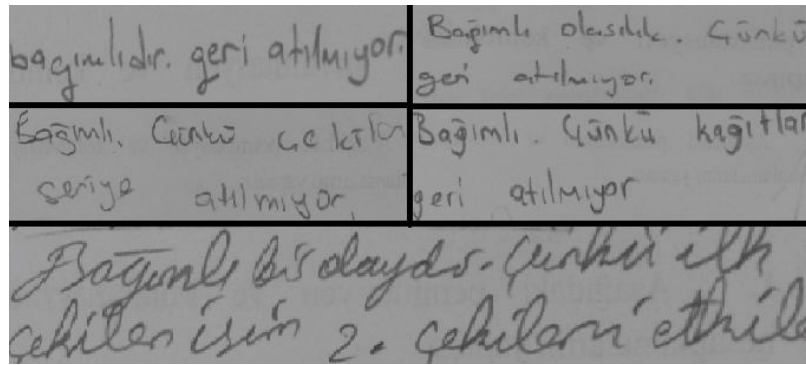 bağımlıdır. geri atılmıyor.
Bağımlı olasılık. Çünkü
geri atılmıyor.
Bağımlı. Çünkü çekilen
geriye atılmıyor.
Bağımlı. Çünkü kağıtlar
geri atılmıyor
Bağımlı bir olaydır. Çünkü ilk
çekilen isim 2. çekileni etkile